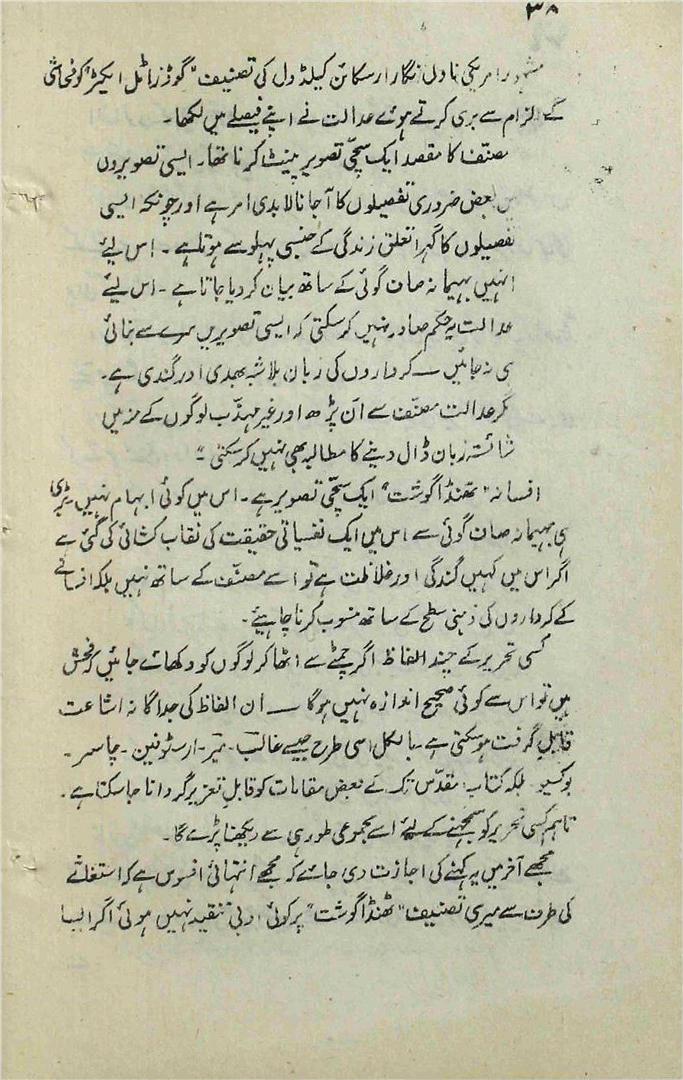 ۳۸
مشہور امریکی ناول نگار ارسکائن کیلڈ ول کی تصنیف "گوڈز لٹل ایکڑ" کو فحاشی
کے الزام سے بری کرتے ہوئے عدالت نے اپنے فیصلے میں لکھا۔
مصنّف کا مقصد ایک سچّی تصویر پینٹ کرنا تھا۔ ایسی تصویروں
میں بعض ضروری تفصیلوں کا آجانا لابدی امر ہے اور چونکہ ایسی
تفصیلوں کا گہرا تعلق زندگی کے جنسی پہلو سے ہوتا ہے ۔ اس لئے
انہیں بہیمانہ صاف گوئی کے ساتھ بیان کر دیا جاتا ہے ۔ اس لئے
عدالت یہ حکم صادر نہیں کر سکتی کہ ایسی تصویریں سرے سے بنائی
ہی نہ جائیں ــ کرداروں کی زبان بلاشبہ بھدی اور گندی ہے۔
مگر عدالت مصنّف سے ان پڑھ اور غیر مہذّب لوگوں کے منہ میں
شائستہ زبان ڈال دینے کا مطالبہ بھی نہیں کر سکتی ۔"
افسانہ "ٹھنڈا گوشت" ایک سچّی تصویر ہے۔ اس میں کوئی ابہام نہیں بڑی
ہی بہیمانہ صاف گوئی سے اس میں ایک نفسیاتی حقیقت کی نقاب کشائی کی گئی ہے
اگر اس میں کہیں گندگی اور غلاظت ہے تو اسے مصنّف کے ساتھ نہیں بلکہ افسانے
کے کرداروں کی ذہنی سطح کے ساتھ منسوب کرنا چاہیئے۔
کسی تحریر کے چند الفاظ اگر چمٹے سے اٹھا کر لوگوں کو دکھائے جائیں کہ فحش
ہیں تو اس سے کوئی صحیح اندازہ نہیں ہوگا ــ ان الفاظ کی جداگانہ اشاعت
قابلِ گرفت ہو سکتی ہے۔ بالکل اسی طرح جیسے غالب۔ میر۔ ارسٹوفینز۔ چاسر۔
بوکیسیو بلکہ کتابِ مقدّس تک کے بعض مقامات کو قابل تعزیر گردانا جا سکتا ہے۔
تاہم کسی تحریر کو سمجھنے کے لئے اسے مجموعی طور ہی سے دیکھنا پڑے گا۔
مجھے آخر میں یہ کہنے کی اجازت دی جائے کہ مجھے انتہائی افسوس ہے کہ استغاثے
کی طرف سے میری تصنیف "ٹھنڈا گوشت" پر کوئی ادبی تنقید نہیں ہوئی اگر ایسا